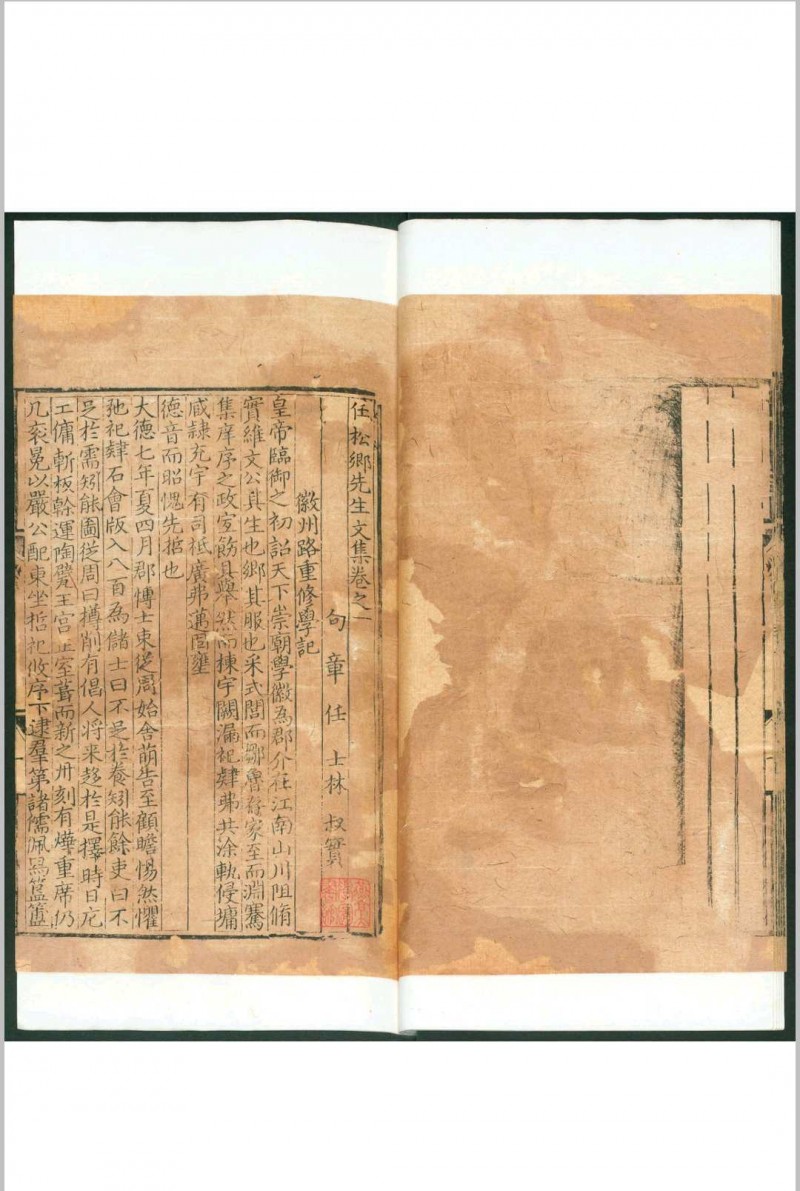 任松鄉先生文集卷之一
句章任士林叔實
徽州路重修學記
皇帝臨御之初詔天下崇廟學徽為郡介在江南山川阻脩
實維文公其生也鄉其服也采式閭而鄒魯存家至而淵騫
集庠序之政室飭具舉然而棟宇闕漏祀肄弗共涂軌侵墉
咸隷充宇有司袛廣弗邁罔壅
德音而昭愧先哲也
大德七年夏四月郡博士東從周始舍萌告至顧瞻惕然懼
弛祀肄石會版入八百為儲士曰不足於養矧能餘吏曰不
足於需矧能圖從周曰樽削有倡人將来趍於是擇時日庀
工傭斬板榦運陶甓王宮正室葺而新之丹刻有燁重席仍
几衮冕以嚴公配東坐哲祀攸序下逮羣第諸儒佩舄簠簋